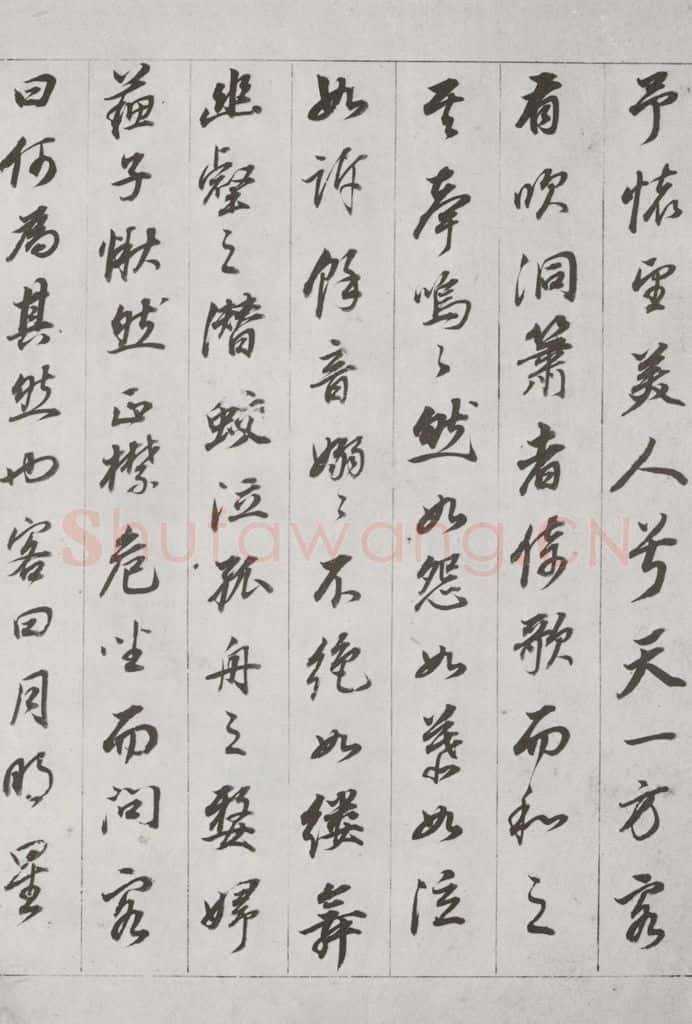 予懷望美人兮天一方客
有吹洞簫者倚歌而和之
其聲嗚〻然如怨如慕如泣
如訴餘音嫋〻不絕如縷舞
幽壑之潛蛟泣孤舟之嫠婦
蘇子愀然正襟危坐而問客
曰何為其然也客曰月明星
Shufawang.CN